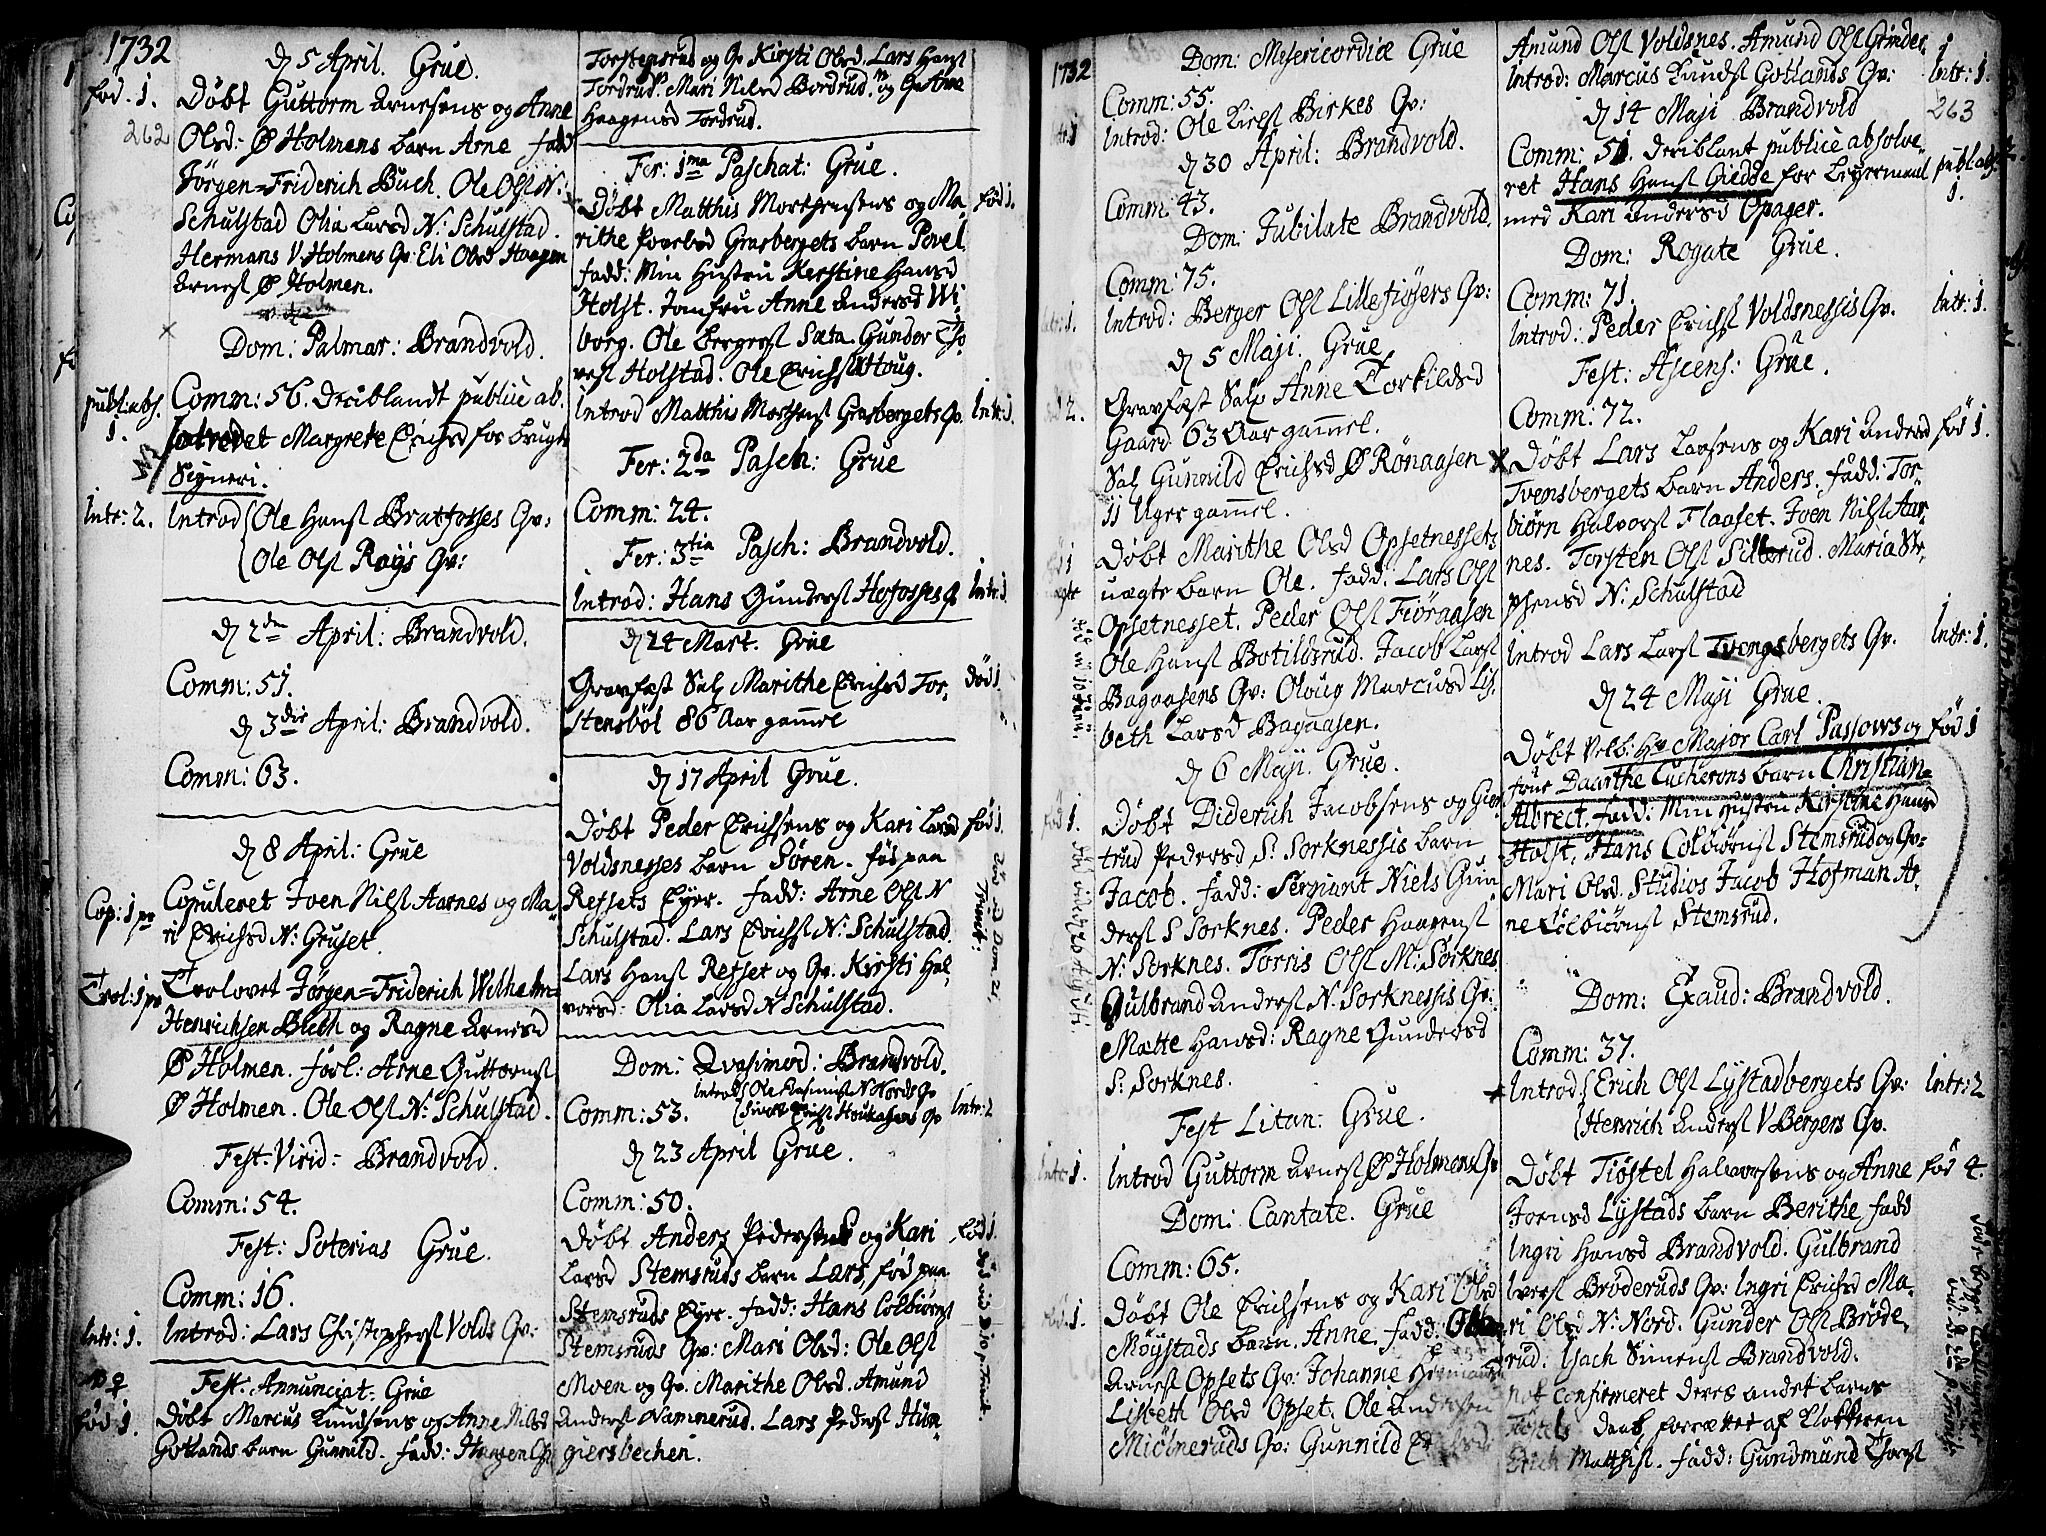 1732
d 5 April. Grue.
fød: 1.
Døbt Guttorm Arnesens og Anne
262
Olsd: Ø Holmens barn Arne fadd
Jørgen=Friderich Buch. Ole Ols N:
Schulstad Olia Larsd N: Schulstad.
Hermans V. Holmens Qv: Eli Olsd Haagen
Arnes Ø Holmen.
Dom: Palmar: Brandvold.
publ: abs. 1.
Comm: 56. Deriblandt publice ab,
solveret Margrete Erichsd for brugte
Signeri.
Intr: 2.
Introd Ole Hans Bratfosses Qv:
Ole Ols Røys Qv:
d 2den April: Brandvold.
Comm: 51.
d 3die April: Brandvold.
Comm: 63.
d 8 April: Grue
Cop: 1 pr
Copuleret Iven Nils Aarnes og Ma-
ri Erichsd N: Gruset.
Trol: 1 pr
Trolovet Jørgen=Friderich Wilhelm=
Henrichsen Buch og Ragne Arnesd
Ø Holmen. forl: Arne Guttorms
Ø Holmen. Ole Ols N: Schulstad.
Fest: Virid: Brandvold.
Comm: 54.
Fest: Soterias Grue.
Comm: 16.
Intr: 1.
Introd: Lars Christophers Volds Qv:
Fest. Annunciat: Grue
fød 1.
Døbt Marcus Knudsens og Anne Nilsd
Gotlands barn Gunnild. fadd: Haagen
Torstensrud og Qv Kirsti Olsd. Lars Hans
Tordrud. Mari Nilsd Bordrud og Anne
Haagensd Tordrud.
Fer: 1ma Paschat: Grue.
Døbt Matthis Morthensens og Ma-
fød 1.
rithe Povelsd Grasbergets barn Povel.
fadd: Min Hustru Kerstine Hansd
Holst. Jomfru Anne Andersd Wi-
borg. Ole Bergers Sæta. Gunder Tho-
res Holstad. Ole Erichs Houg.
Introd Matthis Morthens Grasbergets Qv.
Intr: 1.
Fer: 2da Pasch: Grue
Comm: 24.
Fer: 3tia Pasch: Brandvold.
Introd: Hans Gunders Hofosses Q
Intr: 1
d 24 Mart. Grue
Gravfæst Sal Marithe Erichsd Tor-
død 1.
stensböl 86 Aar gammel
d 17 April Grue.
Døbt Peder Erichsens og Kari Larsd
fød 1.
Voldsnesses barn Søren. fød paa
Refsets Eyer. fadd: Arne Ols N
Schulstad. Lars Erichs N: Schulstad.
Lars Hans Refset og Qv. Kirsti Hal-
vorsd. Olia Larsd N Schulstad.
Dom: Qvasimod: Brandvold.
Introd Ole Rasmus N. Nords Qv
Comm: 53.
Intr: 2
d 23 April Grue.
Comm: 50.
Døbt Anders Pedersens og Kari
fød 1.
Larsd Stemsruds barn Lars, fød paa
Stemsruds Eyer. fadd: Hans Colbiørns
Stemsruds Qv: Mari Olsd: Ole Ols
Moen og Qv. Marithe Olsd. Amund
Anders Nammerud. Lars Peders Hun-
giersbechen.
1732
Dom: Misericordiæ Grue
Comm: 55.
Introd: Ole Birkes Qv:
d 30 April: Brandvold.
Comm 43.
Dom: Jubilate Brandvold.
Comm: 75.
Intr: 1.
Introd: Berger Ols Lilletiøsers Qv:
d 5 Maji. Grue
Gravfæst Sal Anne Torkildsd
Gaard 63 Aar gammel.
Sal Gunnild Erichsd Ø Rönaasen
11 Uger gammel.
Døbt Marithe Olsd Opsetnessets
uægte barn Ole. fadd. Lars Ols
Opsetnesset. Peder Ols Fiöraasen
Ole Hans Botilbsrud. Jacob Lars
Bagaasens Qv: Oloug Marcusd Lis-
beth Larsd Bagaasen.
d 6 Maji. Grue.
fød 1.
Døbt Diderich Jacobsens og Gier-
trud Pedersd S: Sorknessis barn
Jacob. fadd: Sergiant Niels Gun-
ders S Sorknes. Peder Haagens
N: Sorknes. Torris Ols M: Sorknes
Gulbrand Anders N. Sorknessis Qv:
Mætte Hansd: Ragne Gundersd
S: Sorknes.
Fest Litan: Grue.
Intr: 1.
Introd Guttorm Arnes Ø Holmens Qv
Dom: Cantate. Grue
Comm: 65.
fød: 1.
Døbt Ole Erichsens og Kari Olsd
Möystads barn Anne. fadd:
Arnes Opsets Qv: Johanne
Lisbeth Olsd Opset. Ole Andersen
Miölneruds Qv: Gunnild
Amund Ols Voldsnes. Amund Ols Grinder
Introd: Marcus Knuds Gotlands Qv:
Intr: 1.
d 14 Maji Brandvold
263
Comm: 51. Deriblant publice absolve-
ret Hans Hans Giedde for Leyermaal
publ abs 1.
med Kari Andersd Opager.
Dom: Rogate Grue.
Comm: 71.
Introd: Peder Erichs Voldsnessis Qv.
Intr: 1.
Fest: Ascens: Grue.
Comm: 72.
Døbt Lars Larsens og Kari Andersd
fød 1.
Tvensbergets barn Anders. fadd: Tor-
biørn Halvors Flaaset. Iven Nils Aar-
nes. Torsten Ols Silkerud. Maria Ste-
phensd N: Schulstad
Introd Lars Lars Tvengsbergets Qv.
Intr: 1.
d 24 Maji Grue.
Døbt Velb: Hr Major Carl Passows og
fød 1
frue Daarthe Lucherons barn Christian=
Albrect. fadd: Min Hustru Kirstine Hansd
Holst. Hans Colbiørns Stemsrud og Qv:
Mari Olsd. Studios Jacob Hofman Ar-
ne Colbiørns Stemsrud.
Dom: Exaud: Brandvold.
Comm: 37.
Introd Erich Ols Lystadbergets Qv:
Intr: 2
Henrich Anders V Bergers Qv.
Døbt Tiøstel Halvorsens og Anne
fød 4.
Joensd Lystads barn Berithe fadd
Ingri Hansd Brandvold. Gulbrand
Ivers Brøderuds Qv: Ingri Erichsd Ma-
ri Olsd N: Nord. Gunder Ols Brøde-
rud. Isach Simens Brandvold.
not confirmeret deres andet barns
Tiøstels daab, forrættet af Klokkeren
Erich Matthis. fadd: Gundmund Thors